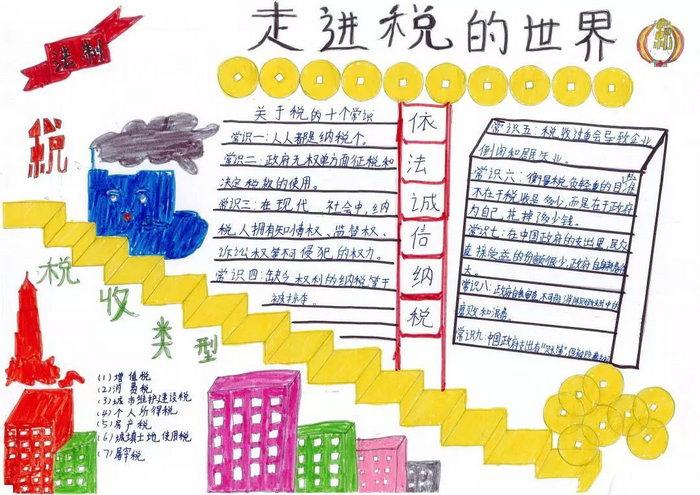 法制
走进税的世界
税
关于税的十个常识
常识一：人人都是纳税人。
常识二：政府无权单方面征税和
决定税款的使用。
常识三：在现代社会中，纳
税人拥有知情权、监督权、
诉讼权等不可侵犯的权力。
常识四：缺少权利的纳税等于
被掠夺。
依法诚信纳税
常识五：税收过重会导致企业
倒闭和居民失业。
常识六：衡量税负轻重的
不在于税收是多少，而是在于政府
为自己花掉多少钱。
常识七：在中国政府的支出里，民众
直接受益的份额很少，政府自身
大。
常识八：政府
腐败和浪费
常识九：中国政府支出有
税收类型
(1)增值税
(2)消费税
(3)城市维护建设税
(4)个人所得税
(5)房产税
(6)城镇土地使用税
(7)屠宰税